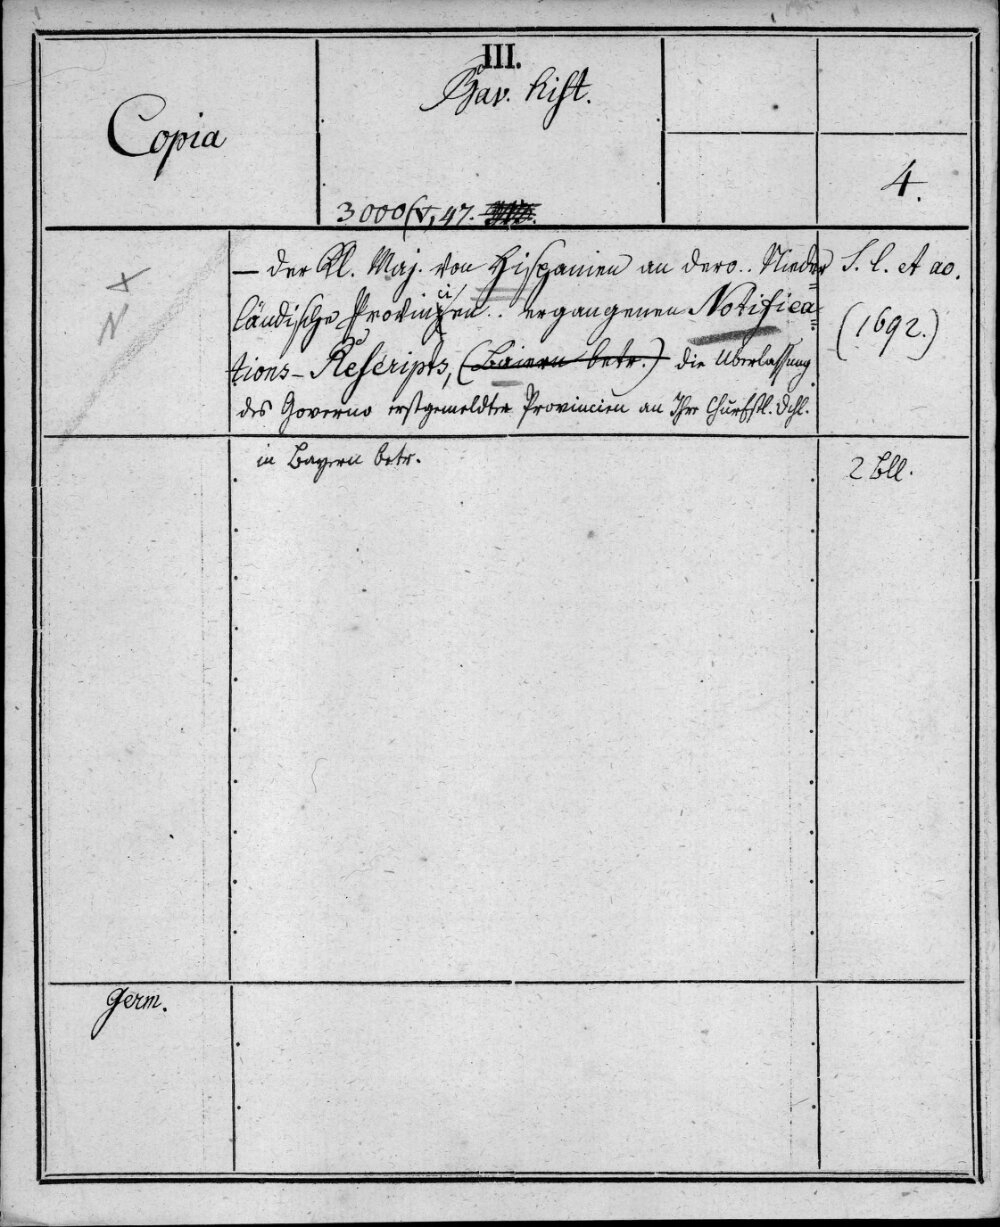 III.
Bav. hist.
Copia
4.
3000/V, 47.
— der Kl. Maj. von Hispanien an dero.. Nieder
S. l. et ao.
ländische Provincien.. ergangenen Notifica-
(1692.)
tions-Rescripts, (Baiern betr.) die Uberlassung
des Governo erstgemeldter Provincien an Ihre Churfstl. Dchl.
in Bayern betr.
2 Bll.
Germ.